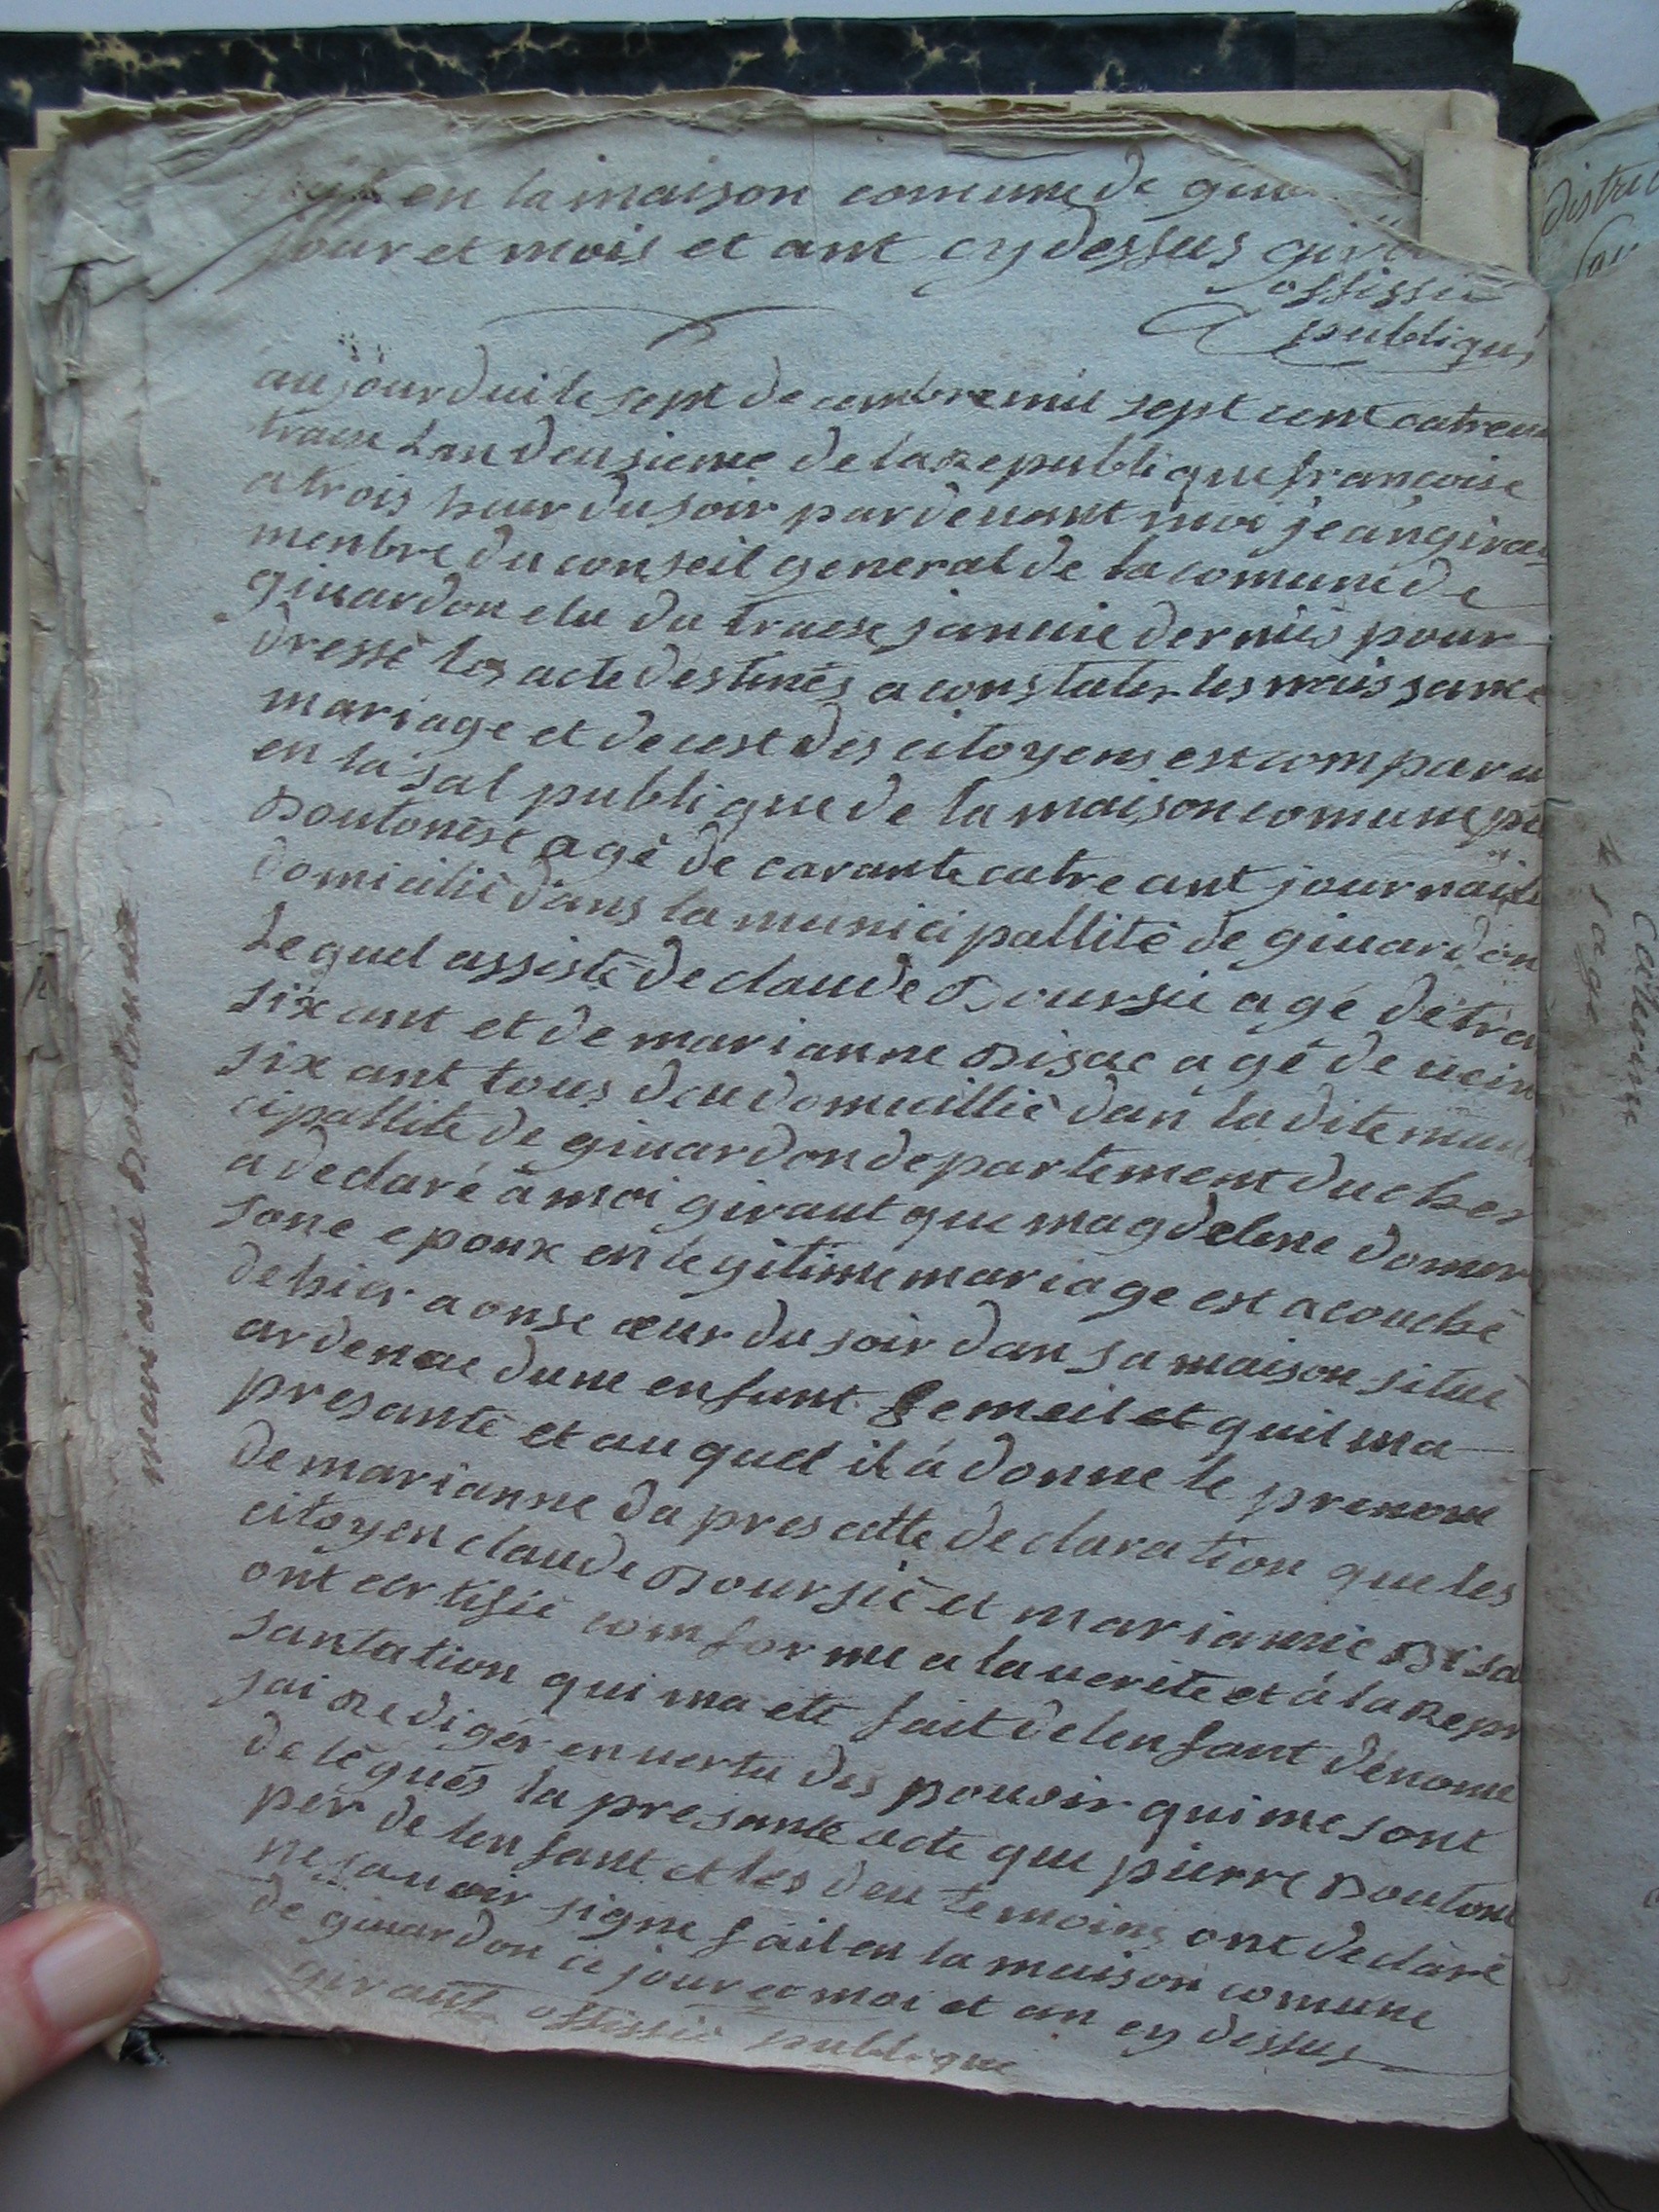 en la maison comune de
jour et mois et ant cy dessus
offissié
publique
aujourduit le sept decembre mil sept cent catreu
traese Lan deusieme de la Republique françoise
a trois heur du soir par devant moi jean girau
menbre du conseil general de la comune de
givardon elu du traese janvie dernié pour
dressé les acte destinés a constater les naissance
mariage et decest des citoyens est comparu
en la sal publique de la maison comune
Boutonest agé de carante catre ant journail
domicilié dans la municipallité de givardon
Lequel assisté de claude Boursié agé de tra
six ant et de marianne Bisac agé de vein
six ant tous deu domicillié dan la dite mun
cipallité de givardon departement du cher
a declaré à moi giraut que magdelene domer
sone epoux en legitime mariage est acouché
de hier a onse œur du soir dan sa maison situé
ardenae dune enfant femeil et quil ma
presanté et au quel il à donne le prenom
de marianne da pres cette declaration que les
citoyen claude Boursié et marianne Bisa
ont certifié comforme a la verite et à la Repr
santation qui ma eté fait de lenfant dénomé
jai Redigér en vertu des pouvoir qui me sont
delégués la presante acte que pierre Boutone
per de lenfant et les deu temoins ont declaré
ne savoir signe fait en la maison comune
de givardon ce jour et moi et an cy dessus
giraut offissié publique
marianne Boutonnet
distric
Caterine
sage